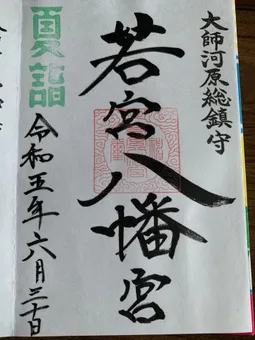 大師河原総鎮守
若宮八幡宮
夏詣
令和五年六月三十日